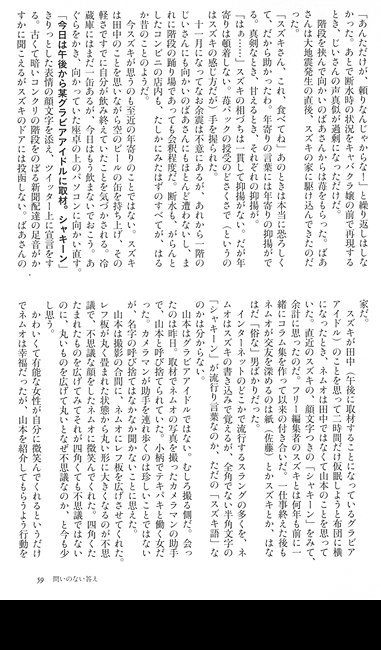 「あんただけが、頼りなんじゃからな！」と繰り返しはしな
かった。あとで断水時の状況をキャバクラ嬢の前で再現する
とき、じいさんの声真似が過剰になっただけだ。
　階段を挟んで向かいのばあさんからは苺をもらった。ばあ
さんは大地震発生の直後、スズキの家に駆け込んできたのだ。
「スズキさん、これ、食べてね」あのときは本当に恐ろしく
て、だから助かったわ。年寄りの言葉には年寄りの抑揚がで
る。真剣なとき、甘えるとき、それぞれの抑揚が。
「はぁ……」スズキの相づちは一貫して抑揚がない。だが年
寄りは頓着しない。苺パックの授受のどさくさで（というの
はスズキの感じ方だが）手を握られた。
　十一月になってなお余震は不意にあるが、あれから一階の
じいさんにも向かいのばあさんにもほとんど遭わないし、ま
れに階段の踊り場であっても会釈程度だ。断水も、がらんと
したコンビニの店内も、たしかにみたはずのすべてが、はる
か昔のことのようだ。
　今スズキが思うのも至近の年寄りのことではない。スズキ
は田中のことを思いながら空のビールの缶を持ち上げ、その
軽さですでに自分が飲み終えていたことを気づかされる。冷
蔵庫にはまだ一缶あるが、今日はもう飲まないでおこう。あ
ぐらをかき、向かっていた座卓の上のパソコンに向かい直す。
「今日は午後から某グラビアアイドルに取材。シャキーン」
きりっとした表情の顔文字を添え、ツイッター上に宣言をす
る。古くて暗いコンクリの階段をのぼる新聞配達の足音がか
すかに聞こえるがスズキのドアには投函しない。ばあさんの
家だ。
　スズキが田中（午後に取材することになっているグラビア
アイドル）のことを思って二時間だけ仮眠しようと布団に横
になったとき、ネムオは田中ではなくて山本のことを思って
いた。直近のスズキの、顔文字つきの「シャキーン」をみて、
余計に思ったのだ。フリー編集者のスズキとは何年も前に一
緒にコラム集を作って以来の付き合いだ。一仕事終えた後も
ネムオが交友を深めるのは紙（佐藤）とかスズキとか、はな
はだ「俗な」男ばかりだった。
　インターネットのどこかで流行するスラングの多くを、ネ
ムオはスズキの書き込みで覚えるが、全角でない半角文字の
「シャキーン」が流行り言葉なのか、ただの「スズキ語」な
のかは分からない。
　山本はグラビアアイドルではない。むしろ撮る側だ。会っ
たのは昨日。取材でネムオの写真を撮ったカメラマンの助手
で、山本と呼び捨てられていた。小柄でテキパキと働く女だ
った。カメラマンが助手を連れ歩くのは珍しいことではない
が、名字の呼び捨てではなかなか聞かないことに思えた。
　山本は撮影の合間に、ネムオにレフ板を広げさせてくれた。
レフ板が丸く畳まれた状態から丸い形に大きくなるのが不思
議で、不思議な顔をしたネムオに微笑んでくれた。四角くた
たまれたものを広げてみてそれが四角くても不思議ではない
のに、丸いものを広げて丸いとなぜ不思議なのか、と今も少
し思う。
　かわいくて有能な女性が自分に微笑んでくれるというだけ
でネムオは幸福だったが、山本を紹介してもらうよう行動を
59　問いのない答え